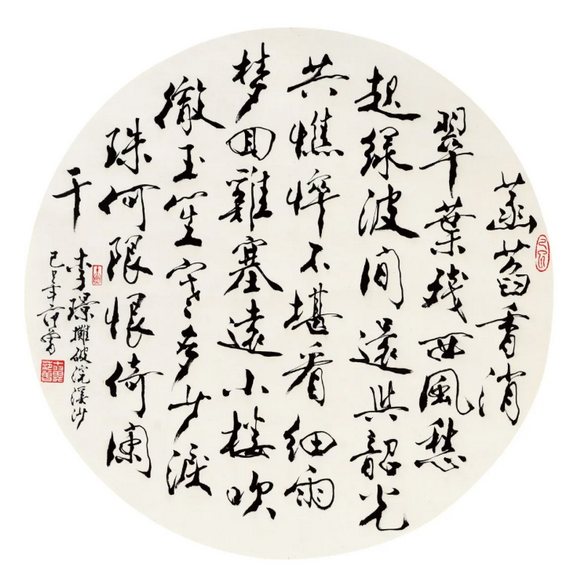 菡萏香消
翠葉殘西風愁
起綠波間還與韶光
共憔悴不堪看細雨
夢回雞塞遠小樓吹
徹玉笙寒多少淚
珠何限恨倚闌
干
李璟攤破浣溪沙
己丑年范曾